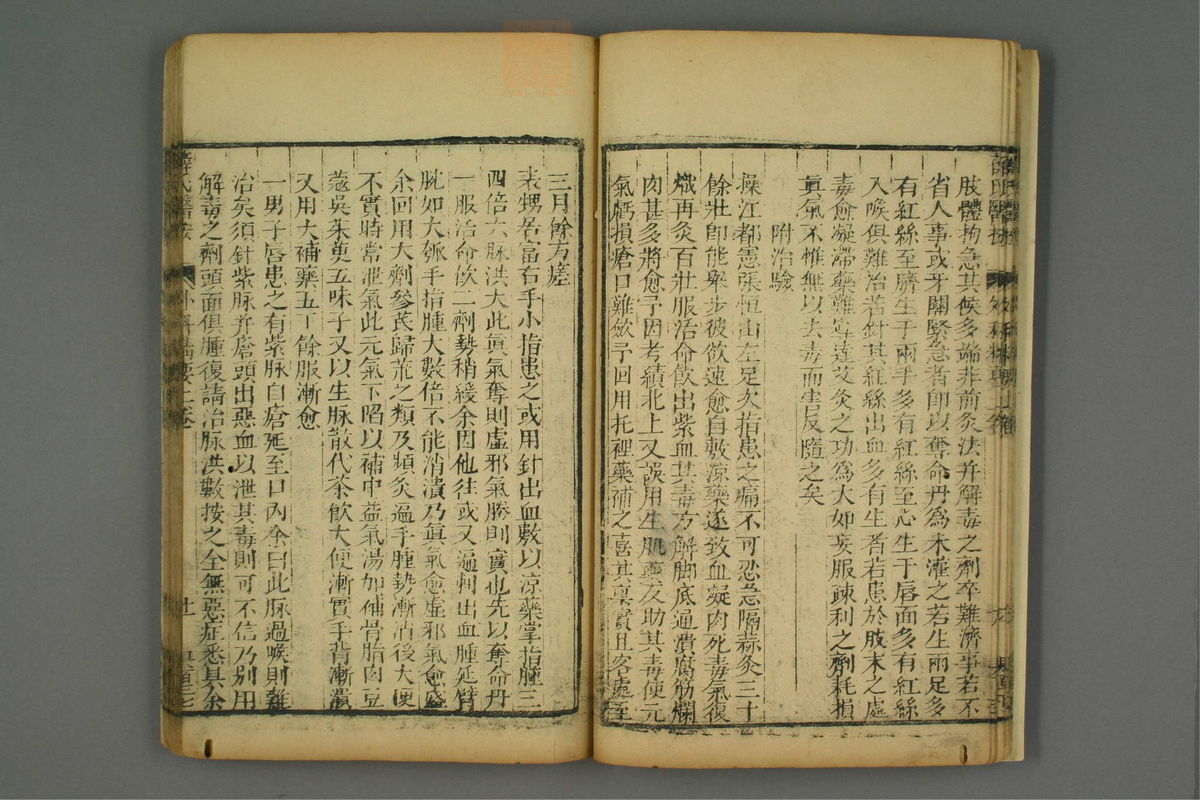 肢體拘急其候多端非前灸法并解毒之劑卒難濟事若不
省人事或牙關緊急者卽以奪命丹爲末灌之若生兩足多
有紅絲至臍生于兩手多有紅絲至心生于唇面多有紅絲
入喉俱難治若針其紅絲出血多有生者若患於肢末之處
毒愈凝滯藥難導達艾灸之功爲大如妄服疎利之劑耗損
眞氣不惟無以去毒而害反隨之矣
附治驗
操江都憲張恒山左足次指患之痛不可忍急隔蒜灸三十
餘壯卽能舉步彼欲速愈自敷凉藥遂致血凝肉死毒氣復
熾再灸百壯服活命飲出紫血其毒方解脚底通潰腐筋爛
肉甚多將愈予因考績北上又誤用生肌藥反助其毒使元
氣虧損瘡口難斂予回用托裡藥補之喜其禀實且客處至
三月餘方瘥
表甥居富右手小指患之或用針出血敷以凉藥掌指腫三
四倍六脉洪大此眞氣奪則虛邪氣勝則實也先以奪命丹
一服活命飲二劑勢稍緩余因他往或又遍刺出血腫延臂
腕如大瓠手指腫大數倍不能消潰乃眞氣愈虛邪氣愈盛
余回用大劑參芪歸朮之類及頻灸遍手腫勢漸消後大便
不實時常泄氣此元氣下陷以補中益氣湯加補骨脂肉荳
蔻吳茱萸五味子又以生脉散代茶飲大便漸實手背漸潰
又用大補藥五十餘服漸愈
一男子唇患之有紫脉自瘡延至口內余曰此脉過喉則難
治矣須針紫脉并瘡頭出惡血以泄其毒則可不信乃別用
解毒之劑頭面俱腫復請治脉洪數按之全無惡症悉具余
薛氏醫按